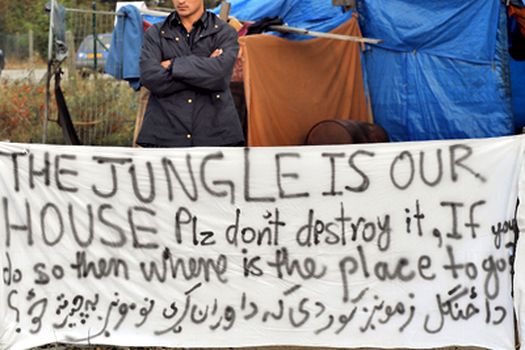 THE JUNGLE IS OUR
HOUSE Plz don't destroy it, If you
do so then where is the place to go
دا ځنګل زمونږ کور دی که دا وران کړی نو مونږ به چیرته ځو؟